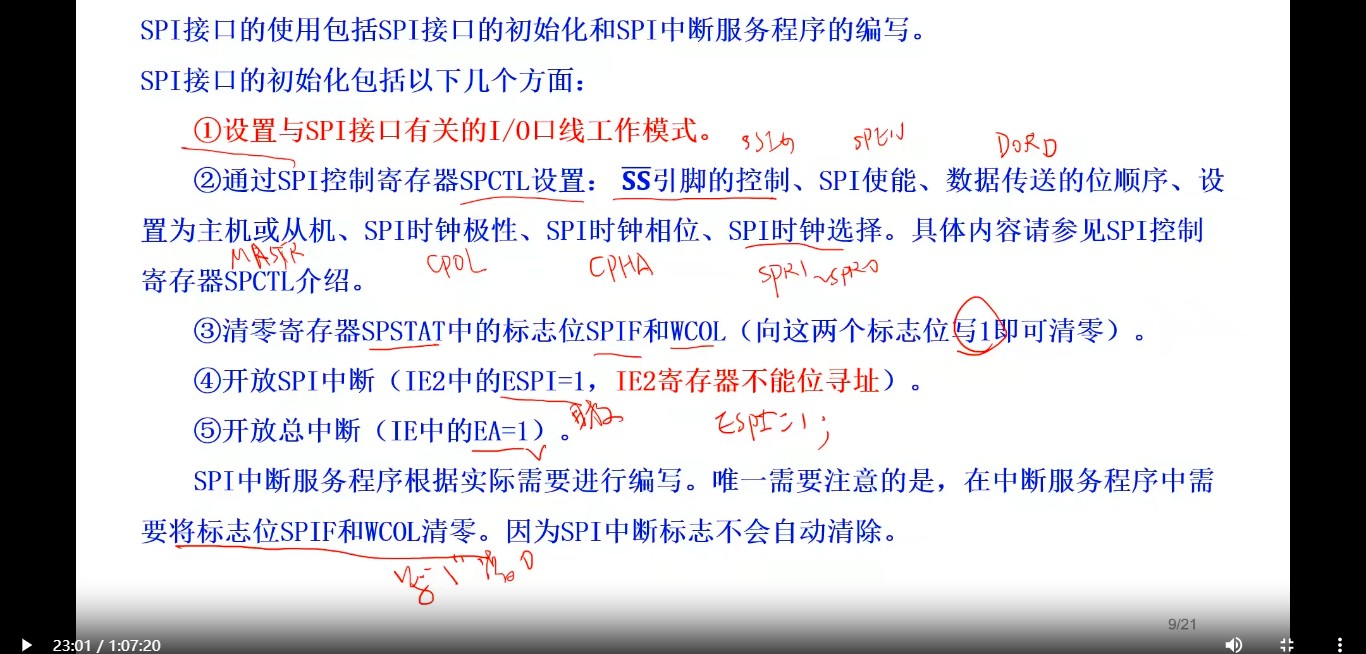 SPI接口的使用包括SPI接口的初始化和SPI中断服务程序的编写。
SPI接口的初始化包括以下几个方面：
①设置与SPI接口有关的I/O口线工作模式。
SSIG SPEN DORD
②通过SPI控制寄存器SPCTL设置：SS引脚的控制、SPI使能、数据传送的位顺序、设
置为主机或从机、SPI时钟极性、SPI时钟相位、SPI时钟选择。具体内容请参见SPI控制
MASTR CPOL CPHA SPR1~SPR0
寄存器SPCTL介绍。
③清零寄存器SPSTAT中的标志位SPIF和WCOL（向这两个标志位写1即可清零）。
④开放SPI中断（IE2中的ESPI=1，IE2寄存器不能位寻址）。
ESPI=1;
⑤开放总中断（IE中的EA=1）。
SPI中断服务程序根据实际需要进行编写。唯一需要注意的是，在中断服务程序中需
要将标志位SPIF和WCOL清零。因为SPI中断标志不会自动清除。
9/21
23:01 / 1:07:20